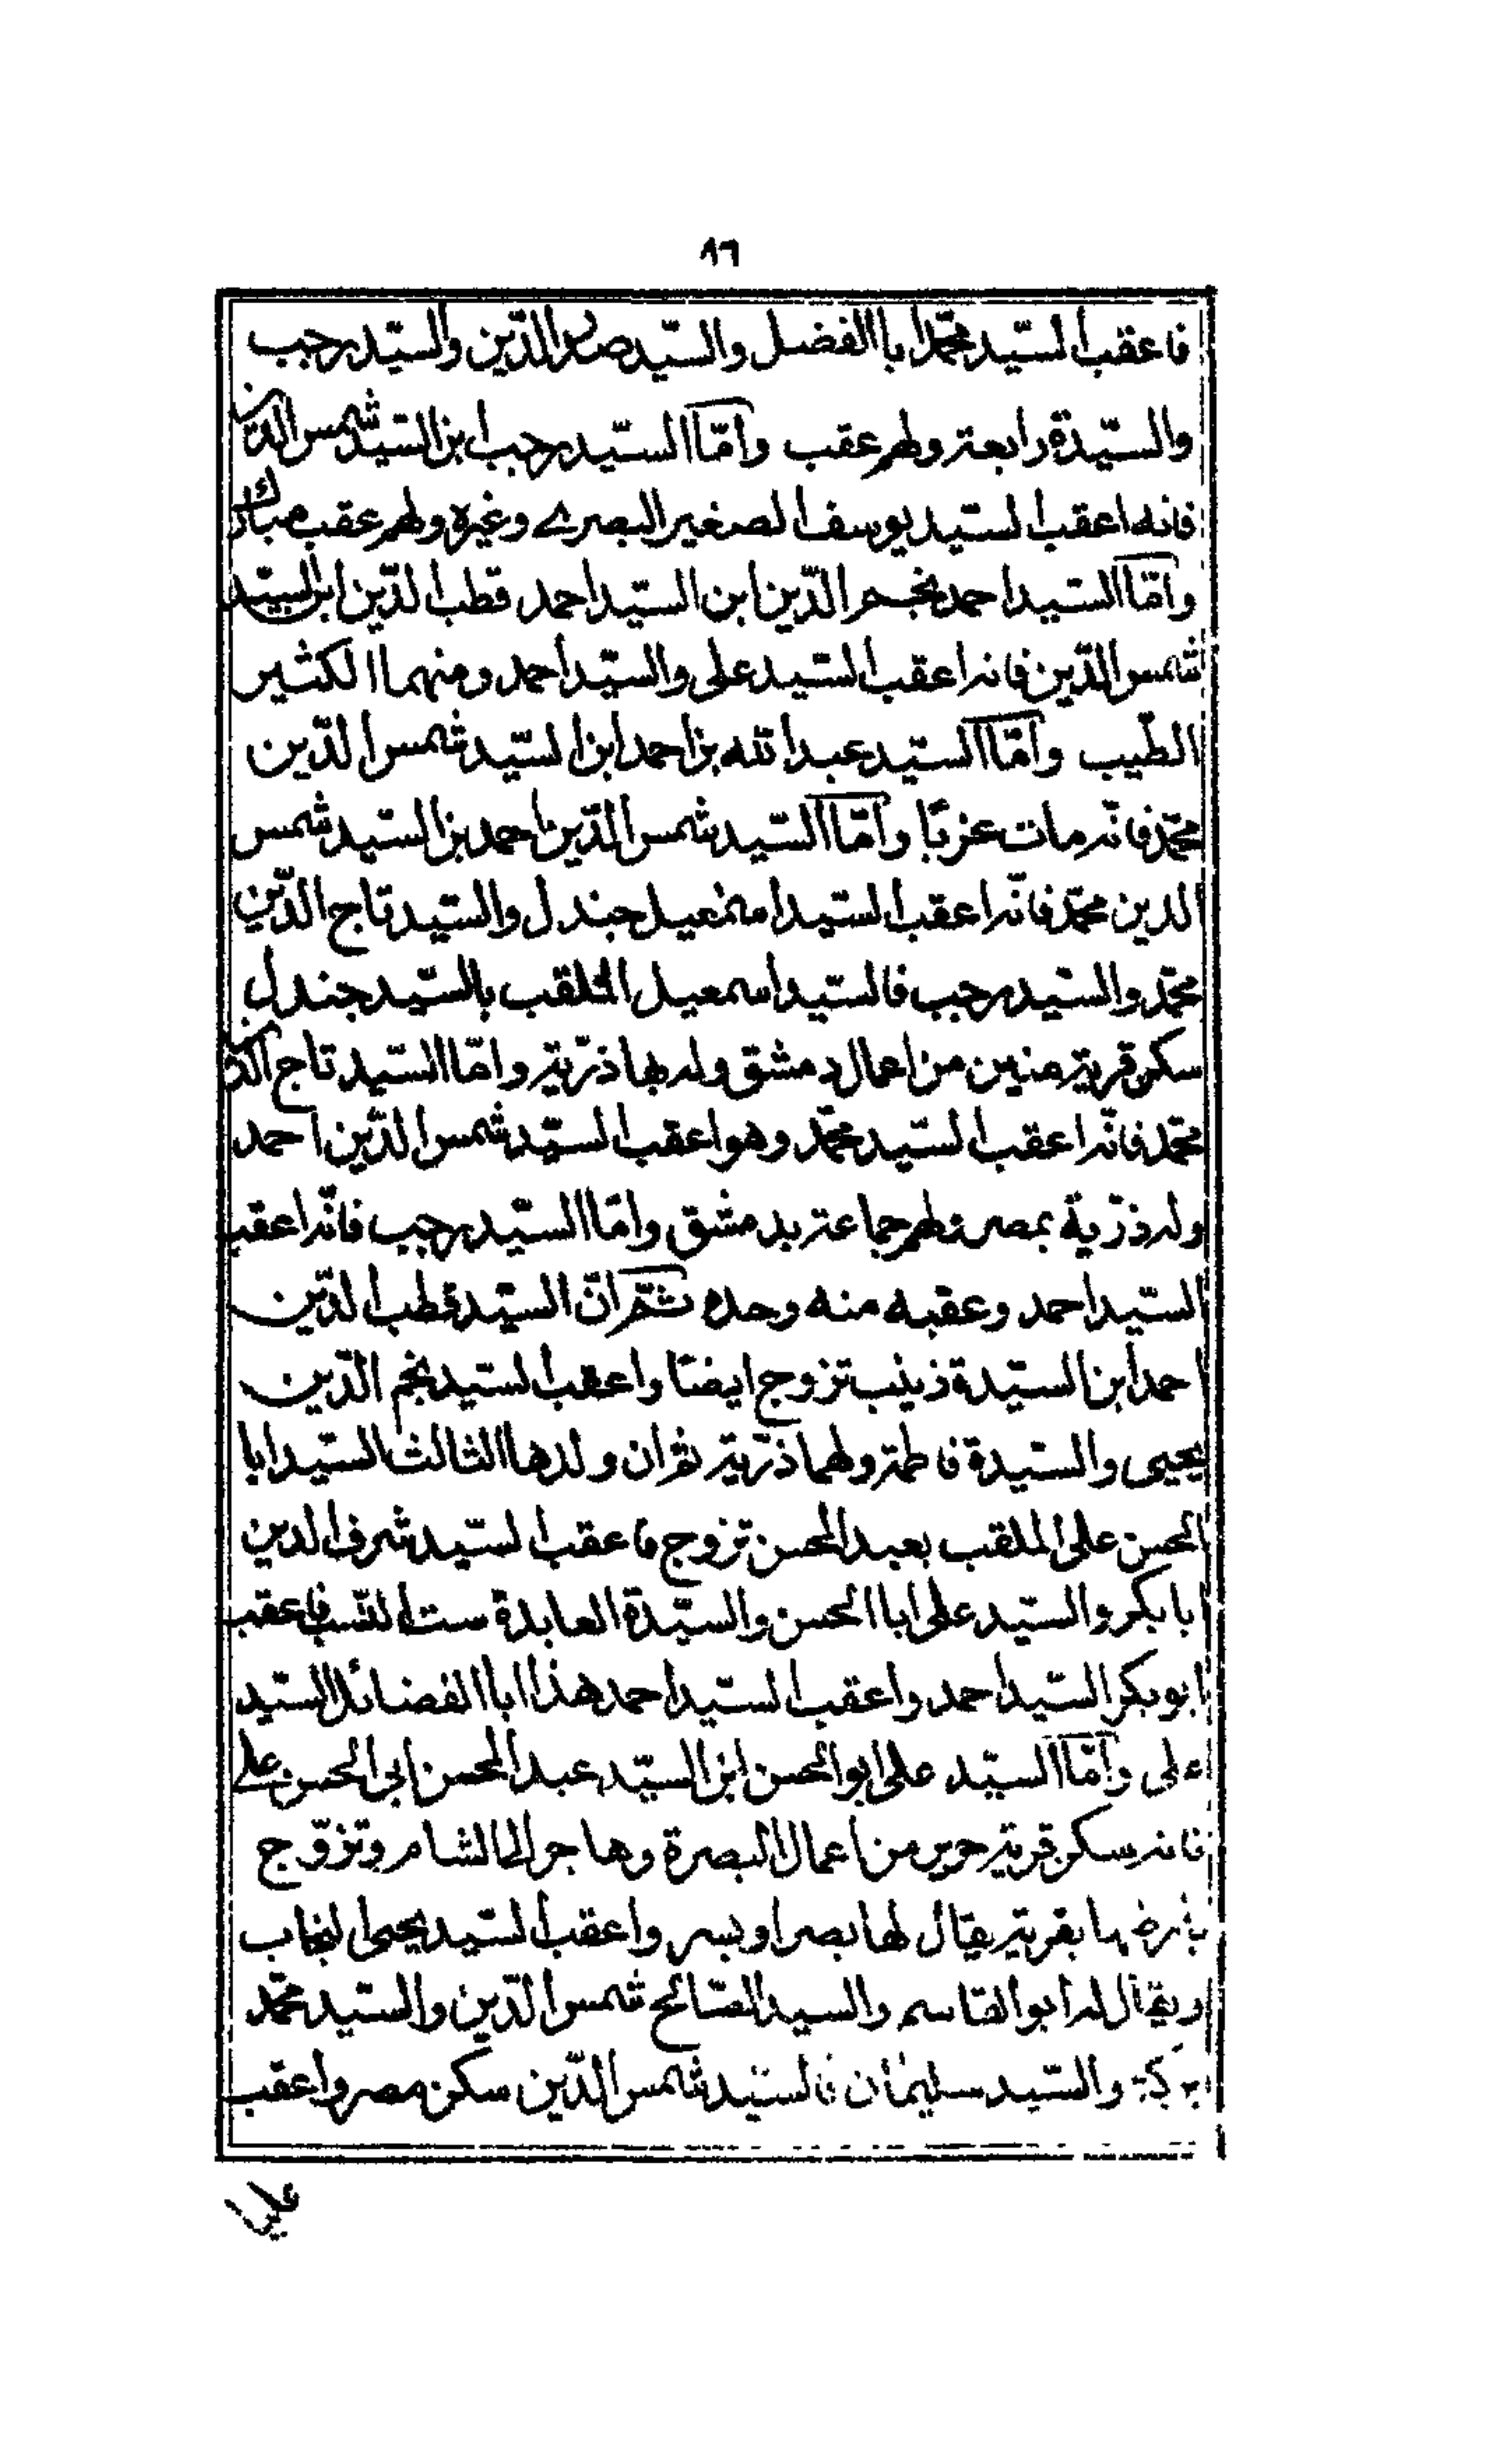 ٨٦
فاعقب السّيد محمّدا ابا الفضل والسّيد صدر الدّين والسّيد رجب
والسّيدة رابعة ولهم عقب وامّا السّيد رجب ابن السّيد شمس الدّين
فانه اعقب السّيد يوسف الصغير البصرى وغيره ولهم عقب مبارك
وامّا السّيد احمد نجم الدّين ابن السّيد احمد قطب الدّين ابن السيّد
شمس الدّين فانه اعقب السّيد على والسّيد احمد ومنهما الكثير
الطّيب وامّا السّيد عبد الله بن احمد ابن السّيد شمس الدّين
محمّد فانّه مات عزبًا وامّا السّيد شمس الدّين احمد بن السّيد شمس
الدين محمّد فانّه اعقب السّيد اسمعيل جندل والسّيد تاج الدّين
محمّد والسّيد رجب فالسّيد اسمعيل الملقب بالسّيد جندل
سكن قرية منين من اعمال دمشق وله بها ذرّية وامّا السّيد تاج الدين
محمّد فانّه اعقب السّيد محمّد وهو اعقب السّيد شمس الدّين احمد
وله ذرّية بمصر ولهم جماعة بدمشق وامّا السّيد رجب فانّه اعقب
السّيد احمد وعقبه منه وحده ثمّ انّ السّيد قطب الدّين
احمد ابن السّيدة زينب تزوج ايضًا واعقب السّيد نجم الدّين
يحيى والسّيدة فاطمة ولهما ذرّية ثم ان ولدها الثالث السّيد ابا
الحسن على الملقب بعبد المحسن تزوج فاعقب السّيد شرف الدين
ابا بكر والسّيد على ابا الحسن والسّيدة العابدة ست النّسب فاعقب
ابو بكر السّيد احمد واعقب السّيد احمد هذا ابا الفضائل السّيد
على وامّا السيّد على ابو الحسن ابن السيّد عبد المحسن ابى الحسن على
فانه سكن قرية حوير من اعمال البصرة وهاجر الى الشام وتزوّج
بارضها بقرية يقال لها بصر او بسر واعقب السّيد يحيى النجاب
ويقال له ابو القاسم والسيد الصّالح شمس الدّين والسّيد محمّد
بركة والسّيد سليمان فالسّيد شمس الدّين سكن مصر واعقب
عليا